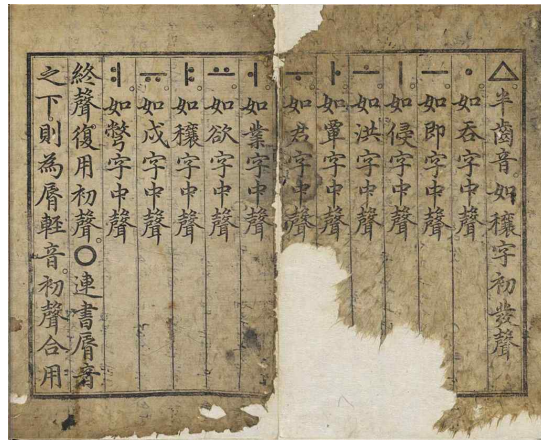 ㅿ。半齒音。如穰字初發聲
ㆍ。如呑字中聲
ㅡ。如即字中聲
ㅣ。如侵字中聲
ㅗ。如洪字中聲
ㅏ。如覃字中聲
ㅜ。如君字中聲
ㅓ。如業字中聲
ㅛ。如欲字中聲
ㅑ。如穰字中聲
ㅠ。如戌字中聲
ㅕ。如彆字中聲
終聲復用初聲。○連書脣音
之下則為脣輕音。初聲合用